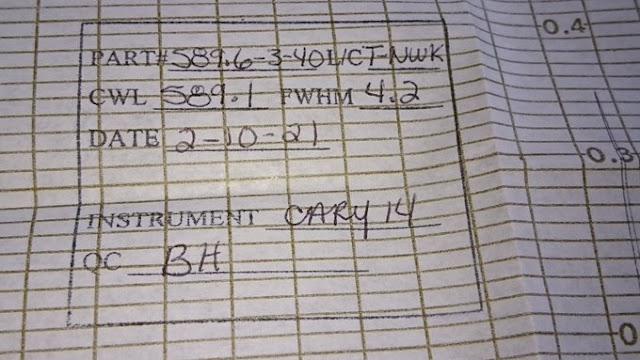 0.4
PART# 589.6-3-40L/CT-NWK
CWL 589.1 FWHM 4.2
DATE 2-10-21
0.3
INSTRUMENT CARY 14
QC BH
0